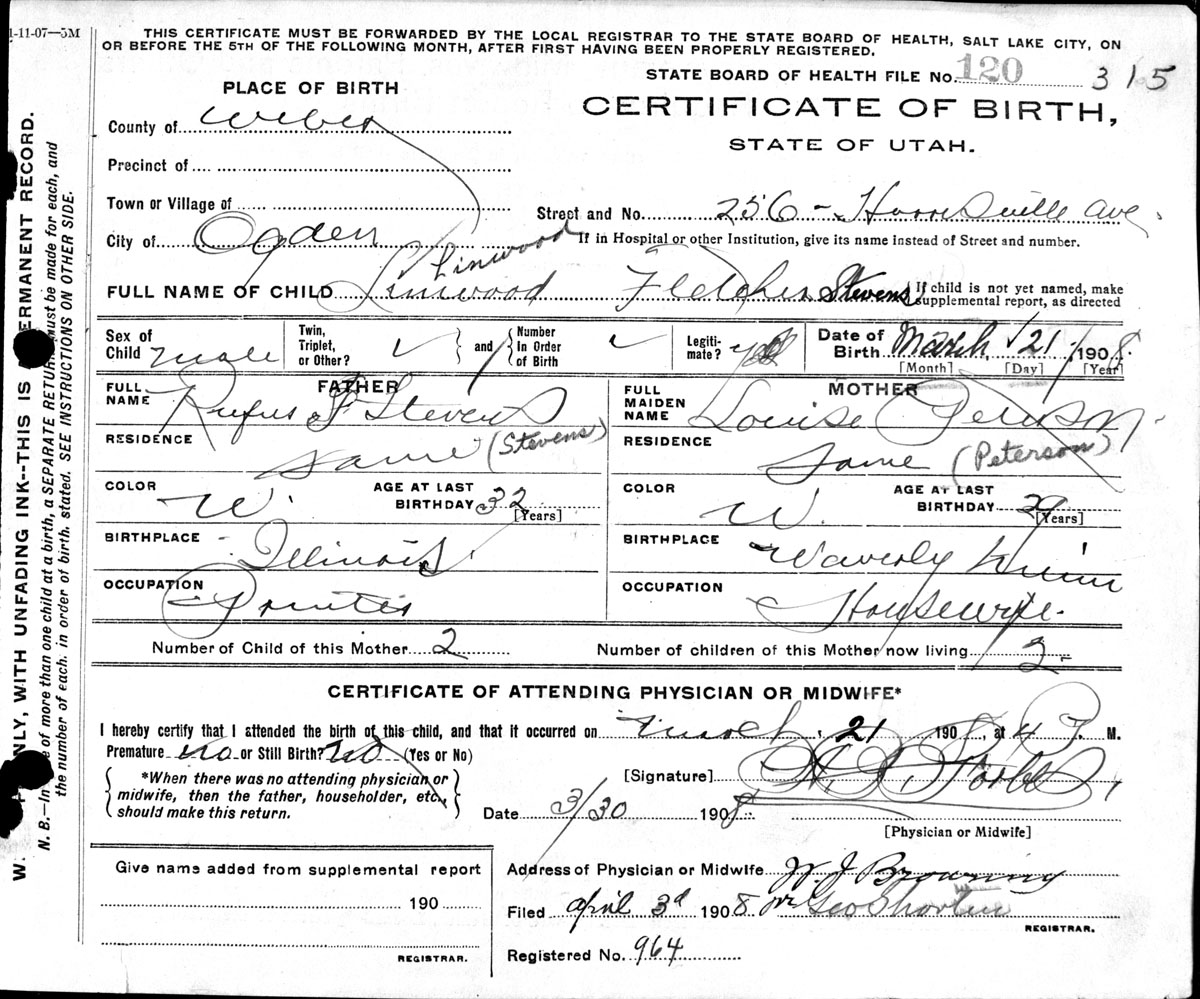 1-11-07—5M
THIS CERTIFICATE MUST BE FORWARDED BY THE LOCAL REGISTRAR TO THE STATE BOARD OF HEALTH, SALT LAKE CITY, ON
OR BEFORE THE 5TH OF THE FOLLOWING MONTH, AFTER FIRST HAVING BEEN PROPERLY REGISTERED.
STATE BOARD OF HEALTH FILE No. 120 315
PLACE OF BIRTH
CERTIFICATE OF BIRTH,
STATE OF UTAH.
County of Weber
Precinct of
Town or Village of
Street and No. 256 - Ave
City of Ogden
If in Hospital or other Institution, give its name instead of Street and number.
Linwood
FULL NAME OF CHILD Linwood Fletcher Stevens
If child is not yet named, make
supplemental report, as directed
Sex of Child male
Twin, Triplet, or Other?
and
Number In Order of Birth
Legiti- mate? yes
Date of Birth March 21 1908
[Month] [Day] [Year]
FATHER
FULL NAME Rufus F Stevens
MOTHER
FULL MAIDEN NAME Louise
RESIDENCE Same (Stevens)
RESIDENCE Same (Peterson)
COLOR W.
AGE AT LAST BIRTHDAY 32 [Years]
COLOR W.
AGE AT LAST BIRTHDAY 29 [Years]
BIRTHPLACE Illinois
BIRTHPLACE Waverly
OCCUPATION
OCCUPATION Housewife.
Number of Child of this Mother 2
Number of children of this Mother now living 2
CERTIFICATE OF ATTENDING PHYSICIAN OR MIDWIFE*
I hereby certify that I attended the birth of this child, and that it occurred on March, 21 1908, at 4 P. M.
Premature no or Still Birth? no (Yes or No)
*When there was no attending physician or
midwife, then the father, householder, etc.,
should make this return.
[Signature]
Date 3/30 1908
[Physician or Midwife]
Give name added from supplemental report
190
REGISTRAR.
Address of Physician or Midwife W. J. Browning
Filed April 3d 1908 Geo
REGISTRAR.
Registered No. 964
W. NLY, WITH UNFADING INK--THIS IS ERMANENT RECORD.
N. B.—In e of more than one child at a birth, a SEPARATE RETURN must be made for each, and
the number of each. in order of birth. stated. SEE INSTRUCTIONS ON OTHER SIDE.